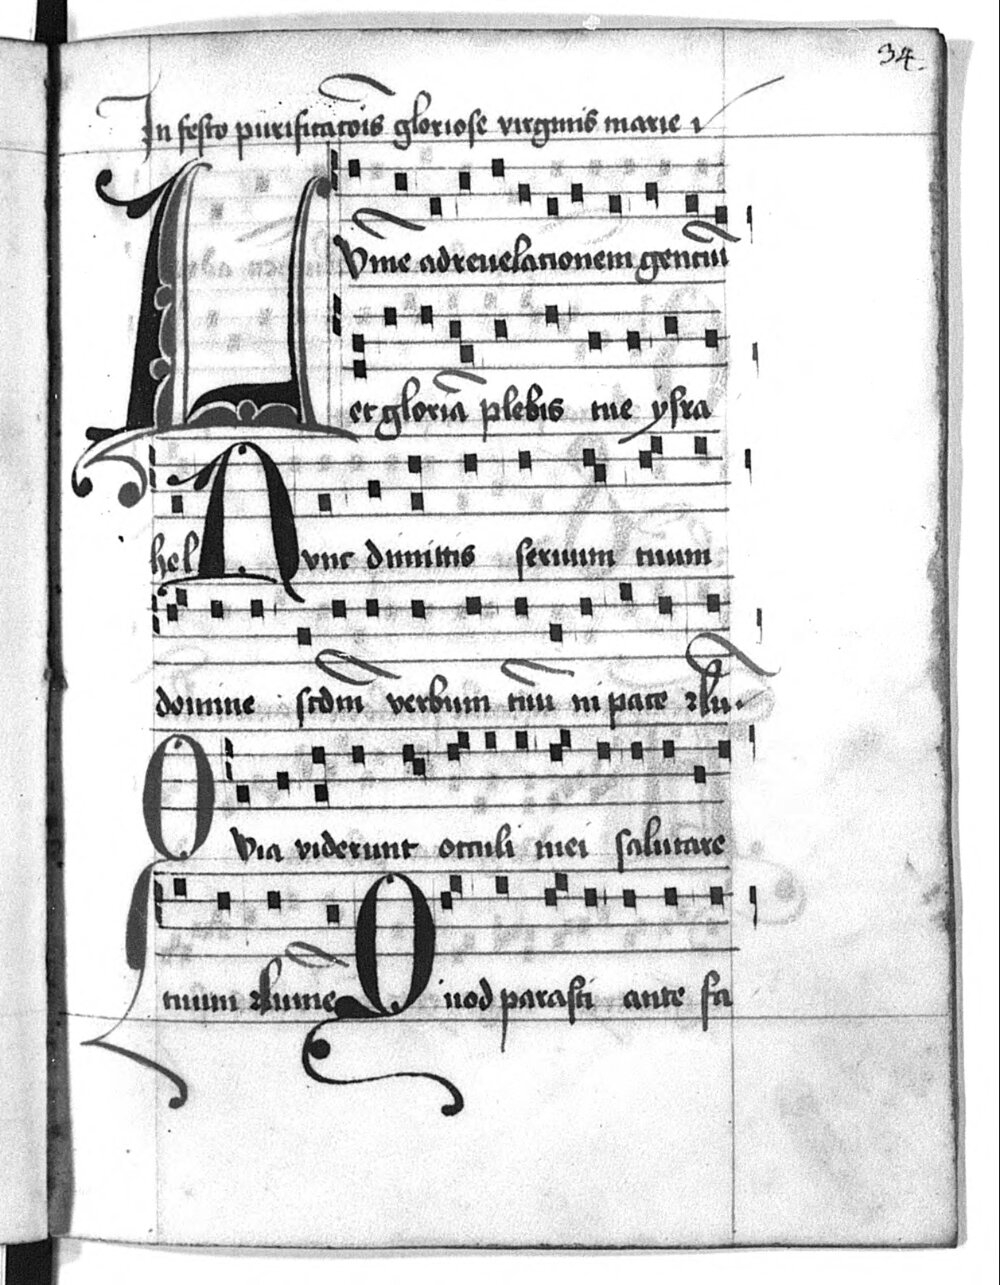 34
In festo purificatōis gloriose virginis marie
LVme ad reuelationem gentiū
et gloriā plebis tue ysra
hel Nunc dimittis seruum tuum
domine scdm verbum tuū in pace ꝛ Lu.
QVia viderunt occuli mei salutare
tuum ꝛ Lume Quod parasti ante fa